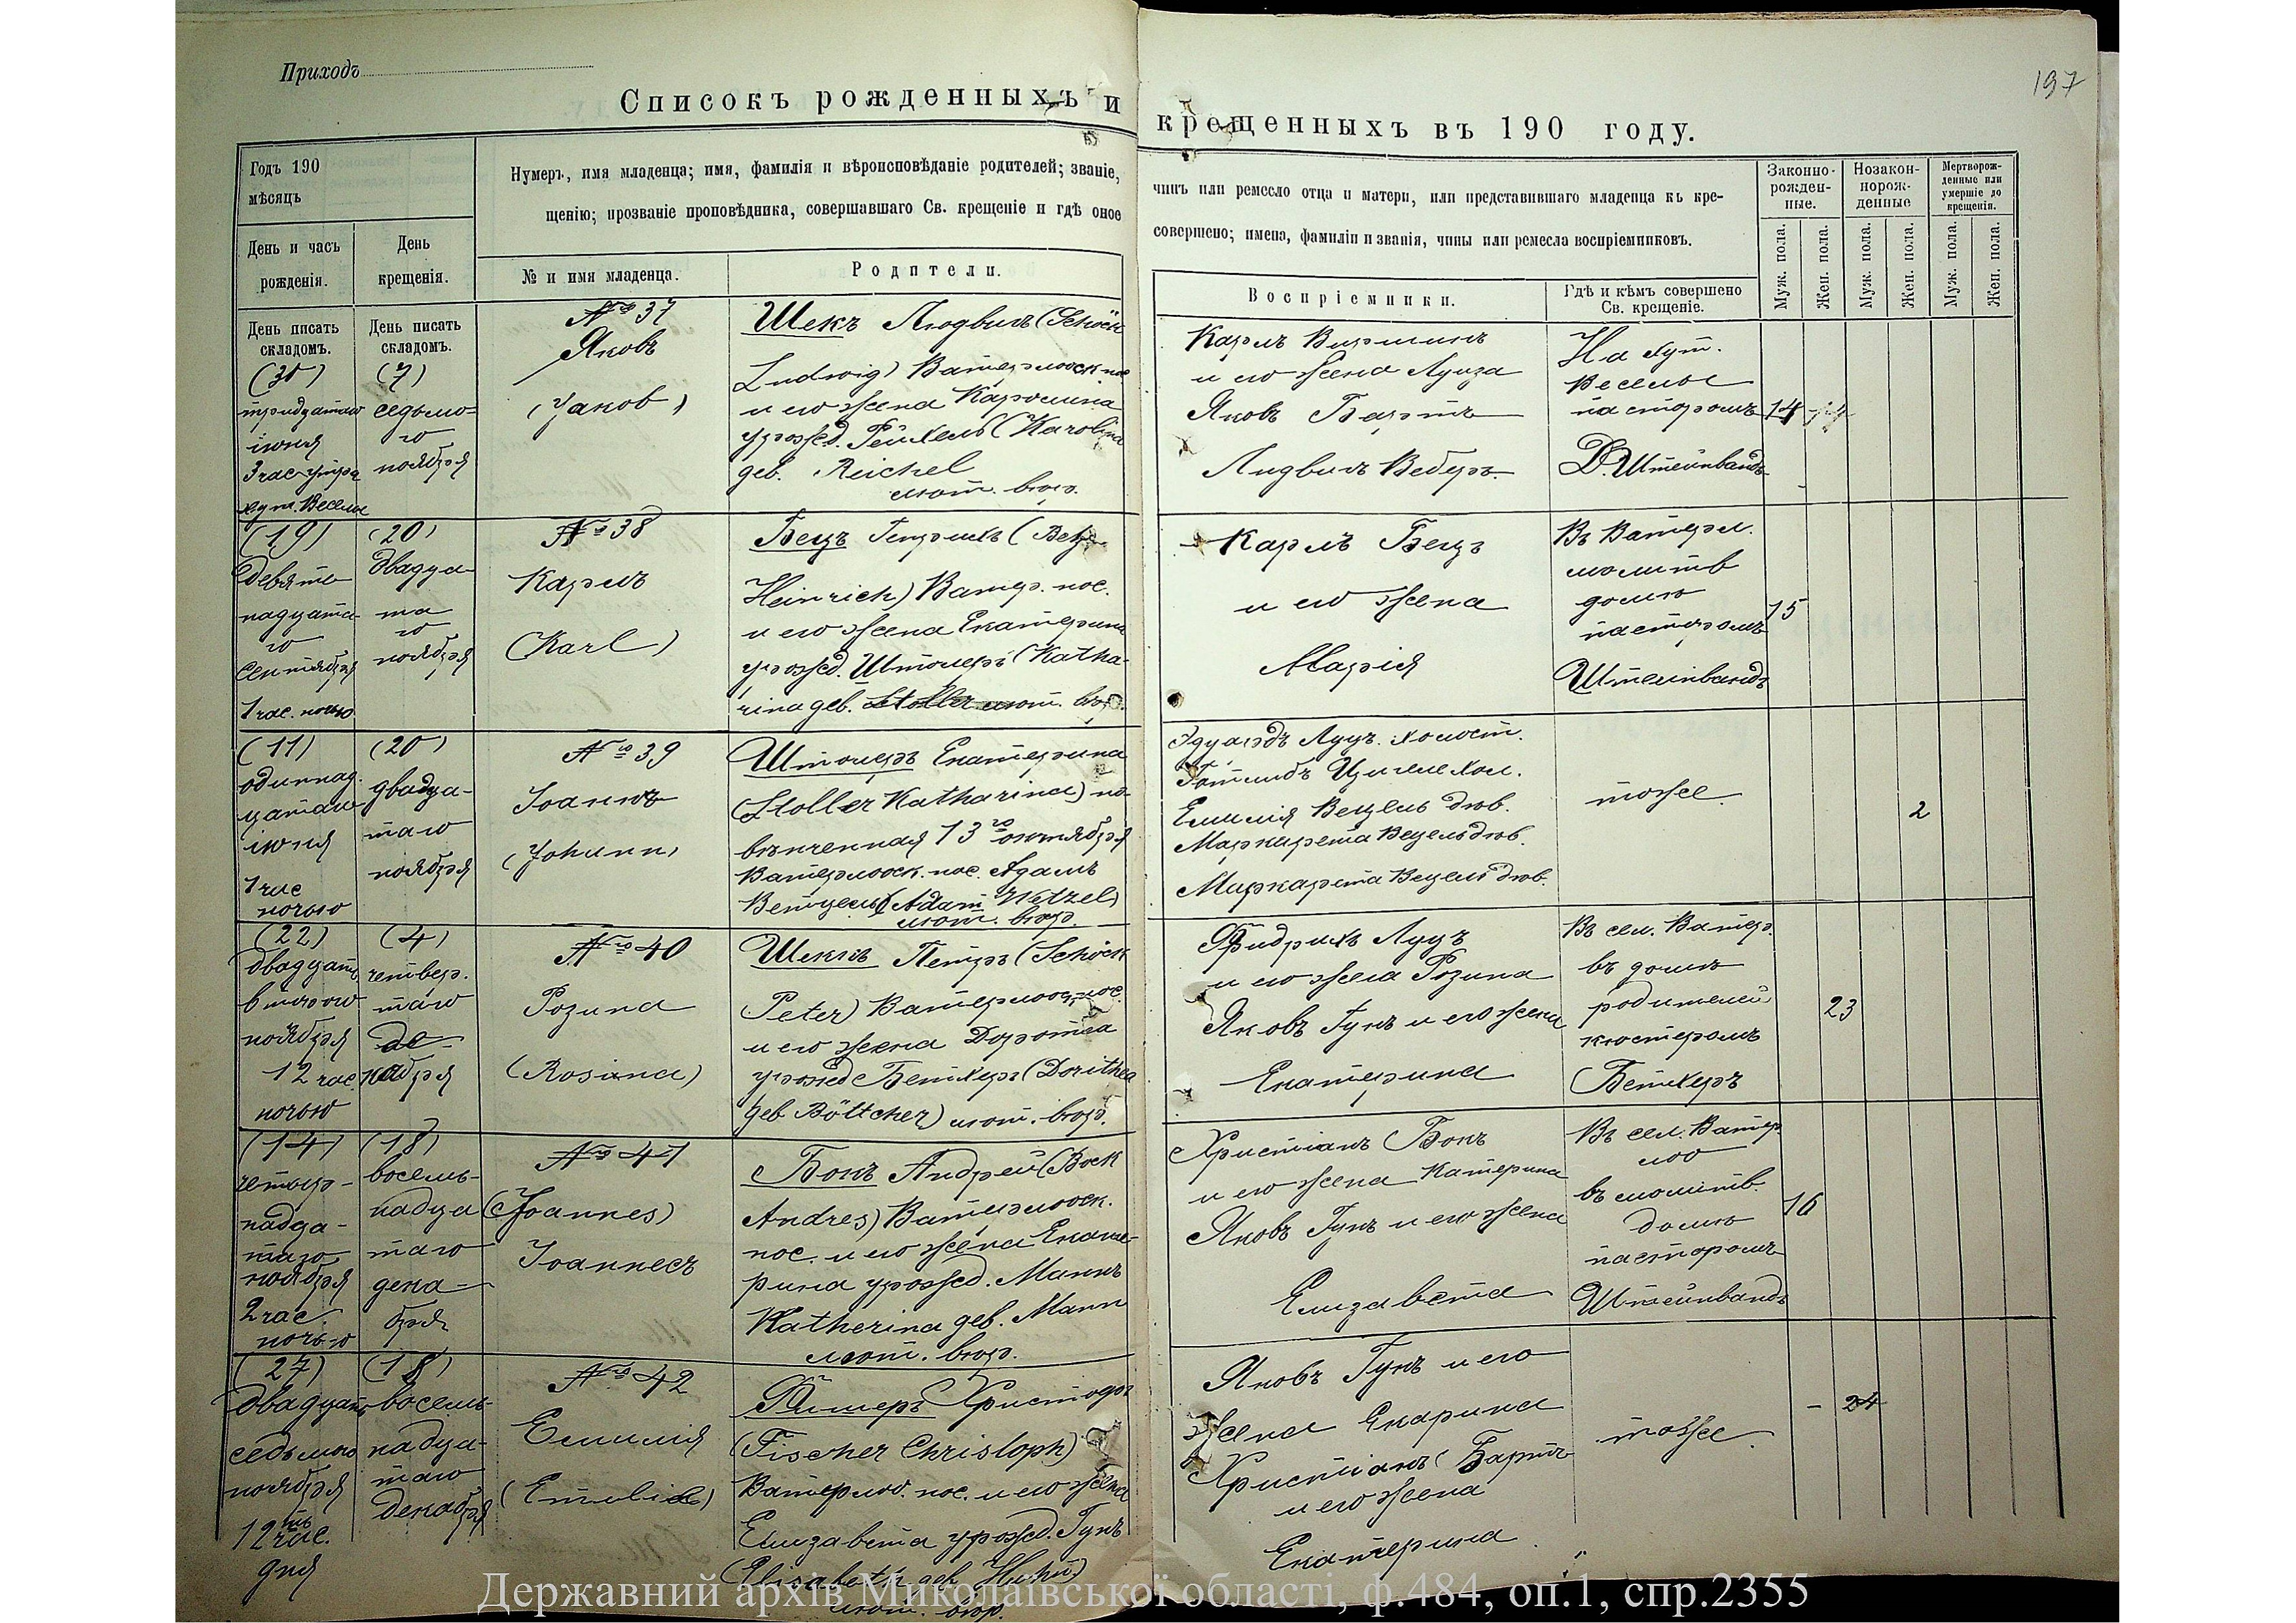 Приходъ
197
Списокъ рожденныхъ и крещенныхъ въ 190 году.
Годъ 190
мѣсяцъ
День и часъ
рожденія.
День
крещенія.
Нумеръ, имя младенца; имя, фамилія и вѣроисповѣданіе родителей; званіе, чинъ или ремесло отца и матери, или представившаго младенца къ кре-
щенію; прозваніе проповѣдника, совершавшаго Св. крещеніе и гдѣ оное совершено; имена, фамиліи и званія, чины или ремесла воспріемниковъ.
№ и имя младенца.
Родители.
Воспріемники.
Гдѣ и кѣмъ совершено
Св. крещеніе.
Законно-
рожден-
ные.
Незакон-
норож-
денные
Мертворож-
денные или
умершіе до
крещенія.
Муж. пола.
Жен. пола.
Муж. пола.
Жен. пола.
Муж. пола.
Жен. пола.
День писать
складомъ.
День писать
складомъ.
(30)
тридцатаго
іюня
3 час. утра
хут. Веселы
(7)
седьмо-
го
ноября
№ 37
Яковъ
(Jakob)
Шекъ Людвигъ (Schöck
Ludwig) Ватерлооск. пос.
и его жена Каролина
урожд. Рейхель (Karolina
geb. Reichel
лют. вѣр.
Карлъ
и его жена Луиза
Яковъ Бартъ
Лидвигъ Веберъ.
На хут.
Веселые
пасторомъ
Д. Штейнвандъ
14
(19)
девят-
надцата-
го
сентября
1 час. ночью
(20)
двадца-
та
го
ноября
№ 38
Карлъ
(Karl)
Бецъ Генрихъ (Betz
Heinrich) Ватер. пос.
и его жена Екатерина
урожд. Штоллеръ (Katha-
rina geb. Stoller лют. вѣр.
Карлъ Бецъ
и его жена
Марія
Въ Ватерл.
молитв
домѣ
пасторомъ
Штейнвандъ
15
(11)
одиннад-
цатаго
іюня
1 час
ночью
(20)
двадца-
таго
ноября
№ 39
Іоаннъ
(Johann)
Штолеръ Екатерина
(Stoller Katharina) по-
вѣнченная 13го октября
Ватерлооск. пос. Адамъ
Ветцель (Adam Wetzel)
лют. вѣр.
Эдуардъ Луцъ. холост.
Готлибъ Цигеле хол.
Емилія Вецель дѣв.
Маркарета Вецель дѣв.
Маркарета Вецель дѣв.
тоже.
2
(22)
двадцать
второго
ноября
12 час
ночью
(4)
четвер-
таго
де-
кабря
№ 40
Розина
(Rosina)
Шекъ Петръ (Schöck
Peter) Ватерлооск. пос.
и его жена Доротеа
урожд Бетхеръ (Dorithea
geb Böttcher) лют. вѣр.
Фридрихъ Луцъ
и его жена Розина
Яковъ Гунъ и его жена
Екатерина
Въ сел. Ватер.
въ домѣ
родителей
кюстеромъ
Бетхеръ
23
(14)
четыр-
надца-
таго
ноября
2 час.
ночью
(18)
восемь-
надца
таго
дека-
бря
№ 41
(Joannes)
Іоаннесъ
Бокъ Андрей (Bock
Andres) Ватерлооск.
пос. и его жена Екате-
рина урожд. Маннъ
Katherina geb. Mann
лют. вѣр.
Христіанъ Бокъ
и его жена Катерина
Яковъ Гунъ и его жена
Елизавета
Въ сел. Ватер
лоо
въ молитв.
домѣ
пасторомъ
Штейнвандъ
16
(27)
двадцать
седьмого
ноября
12 час.
дня
(18)
восемь-
надца-
таго
декабря
№ 42
Емилія
(Emilie)
Фишеръ Христофъ
(Fischer Christoph)
Ватерлоо. пос. и его жена
Елизавета урожд. Гунъ
(Elisabeth geb. Huhn)
лют. вѣр.
Яковъ Гунъ и его
жена Екарина
Христіанъ Бартъ
и его жена
Екатерина
тоже.
24
Державний архів Миколаївської області, ф.484, оп.1, спр.2355